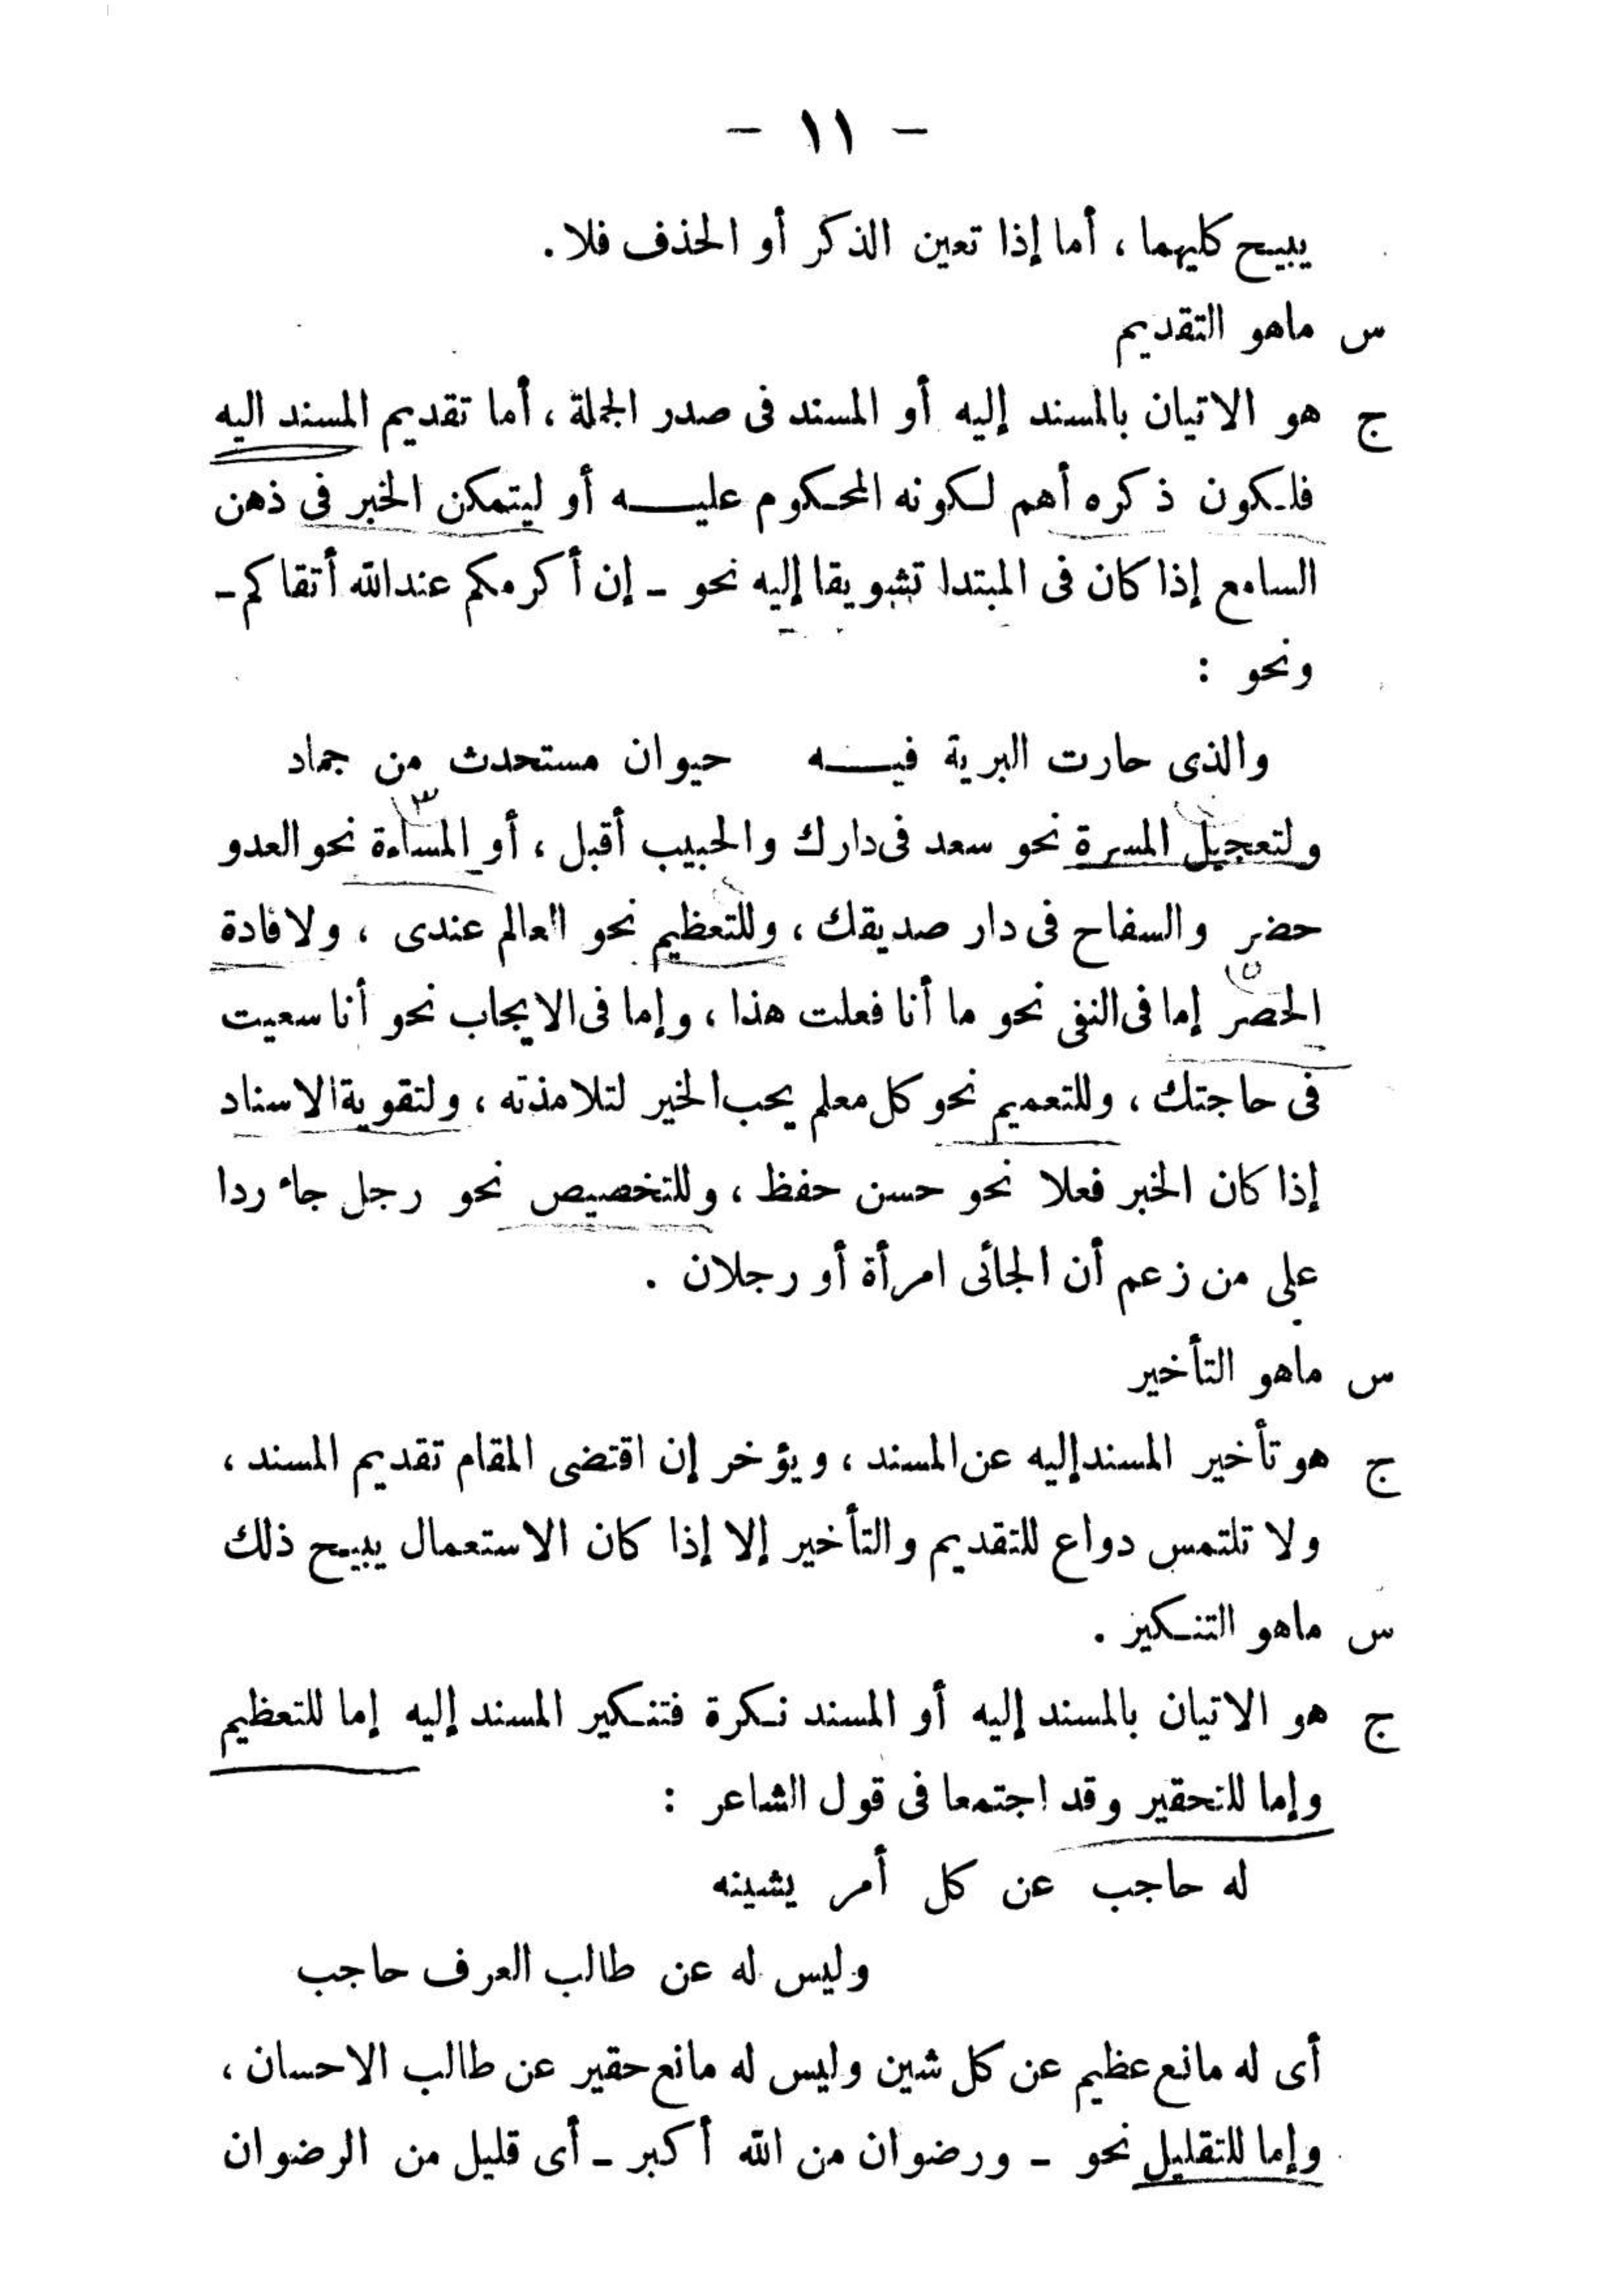 - ١١ -
يبيح كليهما ، أما إذا تعين الذكر أو الحذف فلا .
س ماهو التقديم
ج هو الاتيان بالمسند إليه أو المسند فى صدر الجملة ، أما تقديم المسند اليه
فلكون ذكره أهم لكونه المحكوم عليه أو ليتمكن الخبر فى ذهن
السامع إذا كان فى المبتدا تشويقا إليه نحو - إن أكرمكم عند الله أتقاكم -
ونحو :
والذى حارت البرية فيه حيوان مستحدث من جماد
ولتعجيل المسرة نحو سعد فى دارك والحبيب أقبل ، أو المساءة نحو العدو
حضر والسفاح فى دار صديقك ، وللتعظيم نحو العالم عندى ، ولافادة
الحصر إما فى النفى نحو ما أنا فعلت هذا ، وإما فى الايجاب نحو أنا سعيت
فى حاجتك ، وللتعميم نحو كل معلم يحب الخير لتلامذته ، ولتقوية الاسناد
إذا كان الخبر فعلا نحو حسن حفظ ، وللتخصيص نحو رجل جاء ردا
على من زعم أن الجائى امرأة أو رجلان .
س ماهو التأخير
ج هو تأخير المسند إليه عن المسند ، ويؤخر إن اقتضى المقام تقديم المسند ،
ولا تلتمس دواع للتقديم والتأخير إلا إذا كان الاستعمال يبيح ذلك
س ماهو التنكير .
ج هو الاتيان بالمسند إليه أو المسند نكرة فتنكير المسند إليه إما للتعظيم
وإما للتحقير وقد اجتمعا فى قول الشاعر :
له حاجب عن كل أمر يشينه
وليس له عن طالب العرف حاجب
أى له مانع عظيم عن كل شين وليس له مانع حقير عن طالب الاحسان ،
وإما للتقليل نحو - ورضوان من الله أكبر - أى قليل من الرضوان